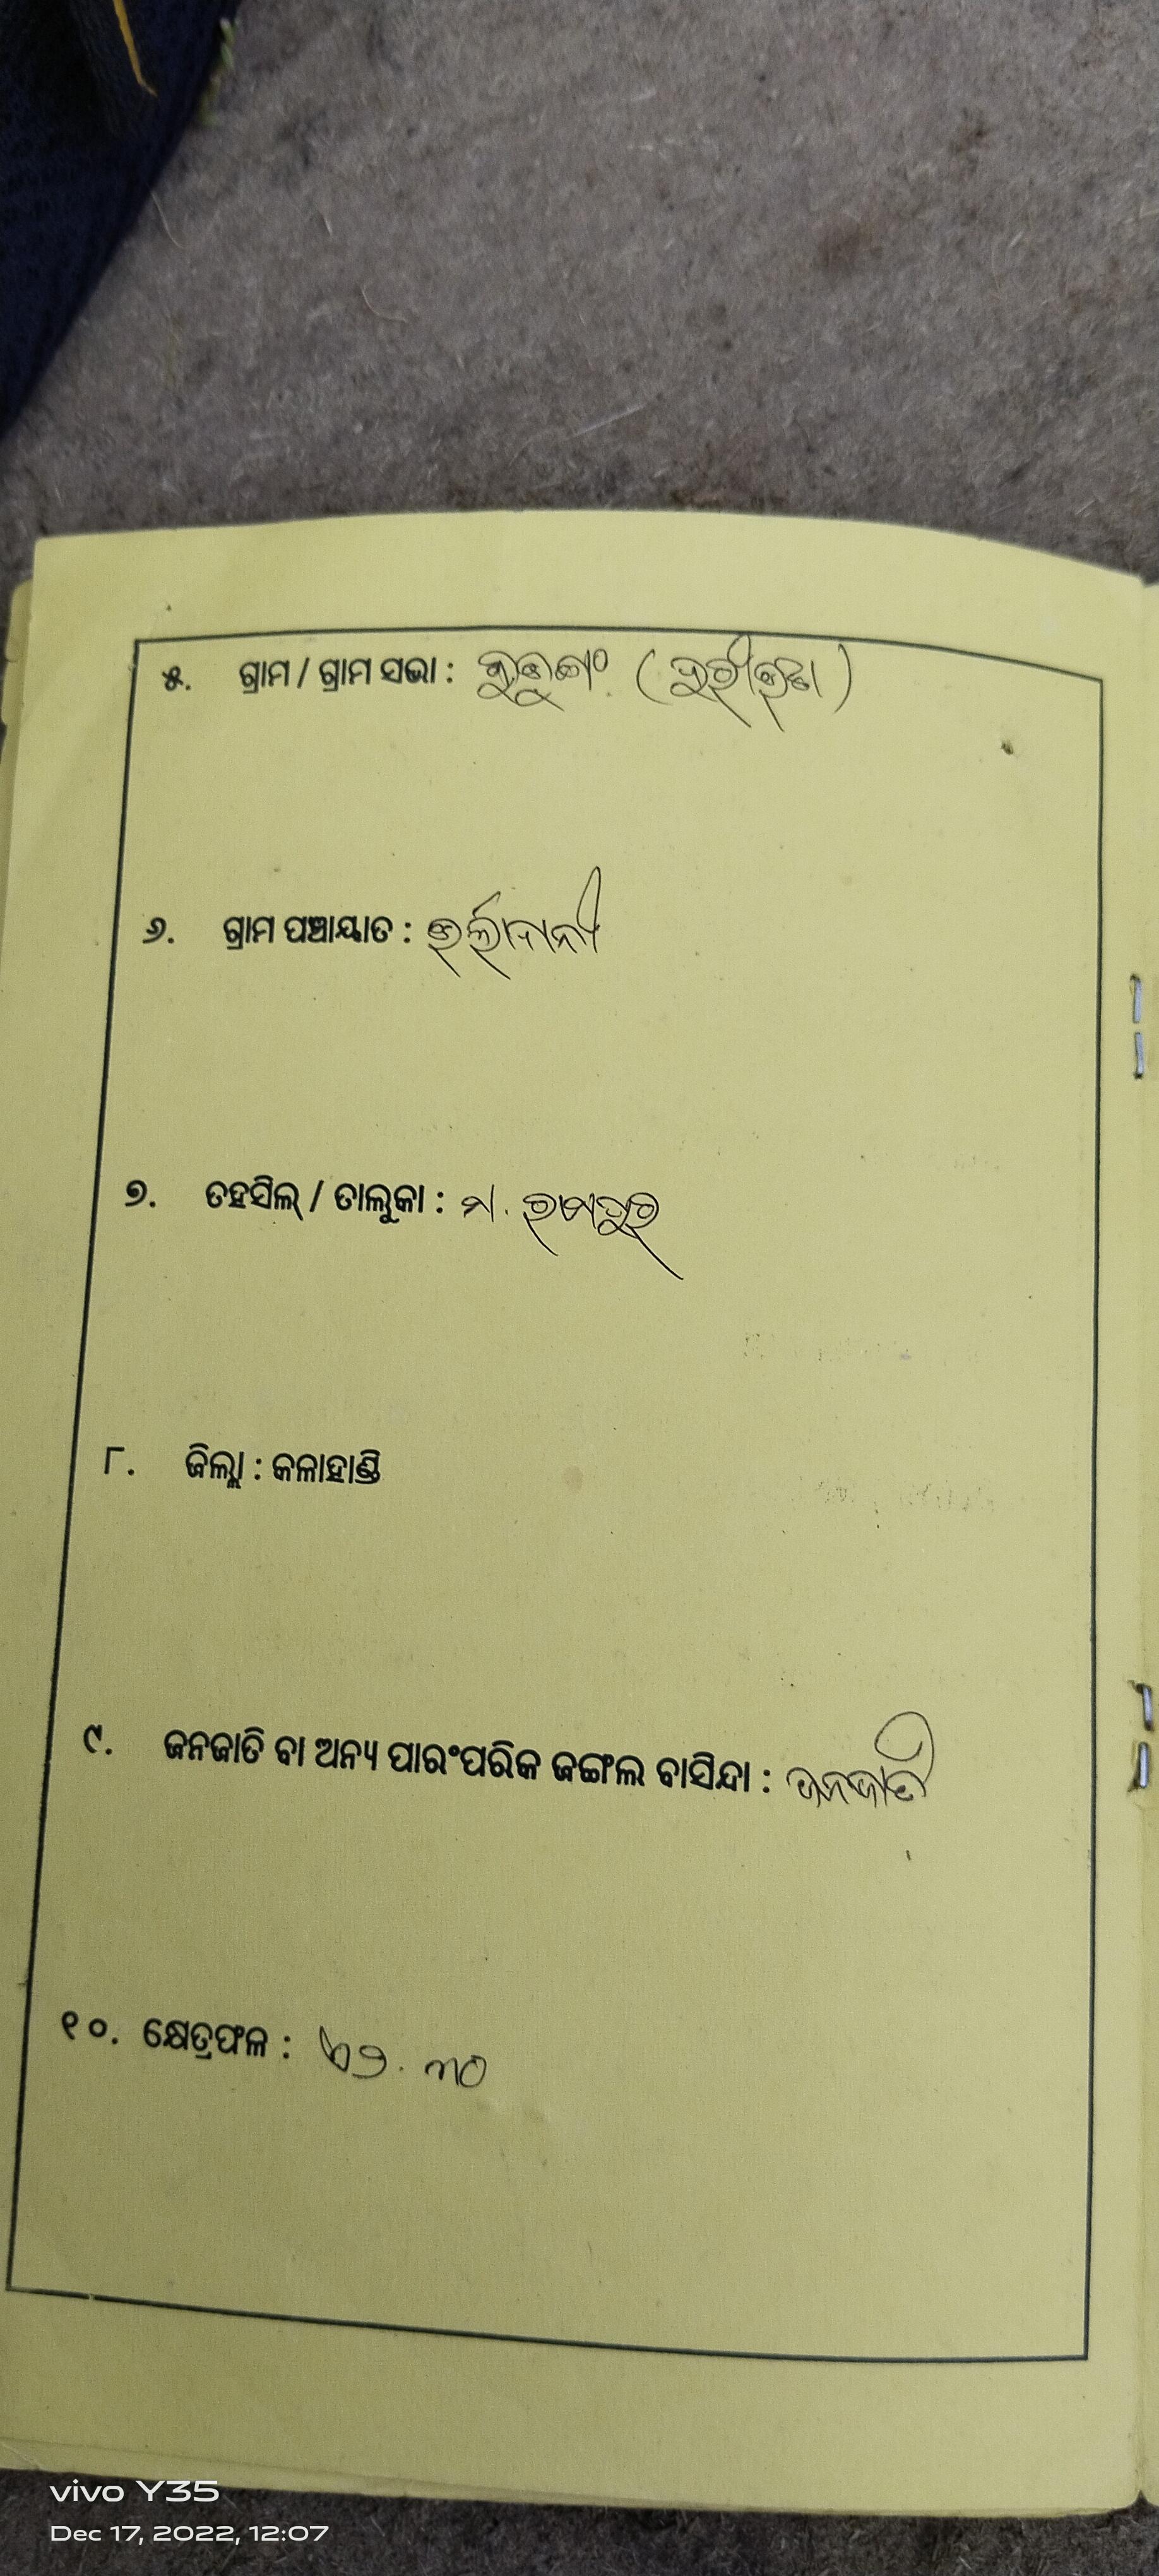 ୫. ଗ୍ରାମ / ଗ୍ରାମ ସଭା :
୬. ଗ୍ରାମ ପଞ୍ଚାୟାତ :
୭. ତହସିଲ୍ / ତାଲୁକା : ମ. ରାମପୁର
୮. ଜିଲ୍ଲା : କଳାହାଣ୍ଡି
୯. ଜନଜାତି ବା ଅନ୍ୟ ପାରଂପରିକ ଜଙ୍ଗଲ ବାସିନ୍ଦା : ଜନଜାତି
୧୦. କ୍ଷେତ୍ରଫଳ :
vivo Y35
Dec 17, 2022, 12:07